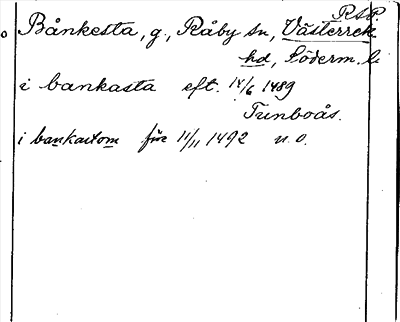 RAP
Bånkesta, g., Råby sn, Västerrek.
hd, Söderm. l.
i bankasta eft. 14/6 1489
Tunboås.
i bankastom före 11/11 1492 u.o.